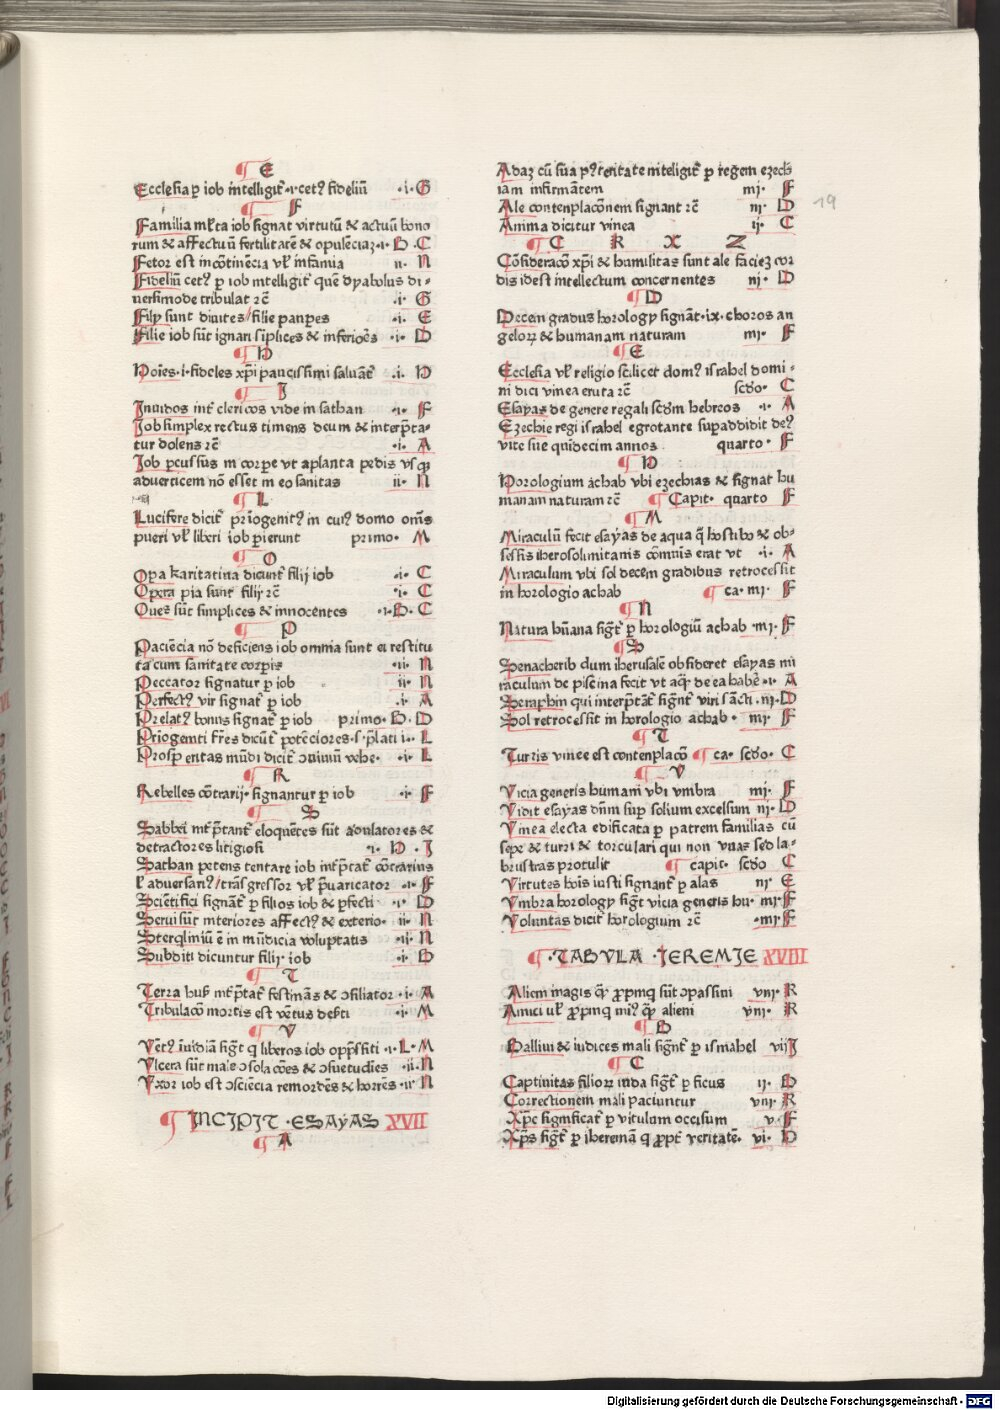 ¶ E
Ecclesia p iob intelligit᷑ ·i· cetꝰ fideliū ·i· G
¶ F
Familia mĺta iob signat virtutū & actuū bono
rum & affectuū fertilitatē & opulēciaꝫ ·i· B · C
Fetor est incōtinēcia vĺ infamia ii· N
Fideliū cetꝰ p iob intelligit᷑ quē dyabolus di-
uersimode tribulat ⁊c̄ ·i· G
Filij sunt diuites/ filie pauperes ·i· E
Filie iob sūt ignari sīplices & inferiōes ·i· D
¶ H
Hoīes ·i· fideles xp̄i paucissimi saluāt᷑ ·i· H
¶ I
Inuidos int᷑ clericos vide in sathan ·i· F
Iob simplex rectus timens deum & interp̄ta-
tur dolens ⁊c̄ ·i· A
Iob pcussus in corpe vt a planta pedis vsqꝫ
ad verticem nō esset in eo sanitas ii· N
¶ L
Lucifere dicit᷑ prīogenitꝰ in cuiꝰ domo om̄s
pueri vĺ liberi iob pierunt primo· M
¶ O
Opa karitatiua dicunt᷑ filij iob ·i· C
Opera pia sunt filij ⁊c̄ ·i· C
Oues sūt simplices & innocentes ·i· B· C
¶ P
Paciēcia nō deficiens iob omnia sunt ei restitu
ta cum sanitate corpis ·ii· N
Peccator signatur p iob ii· N
Perfectꝰ vir signat᷑ p iob ·i· A
Prelatꝰ bonus signat᷑ p iob primo· B· D
Priogeniti fr̄es dicūt᷑ potēciores ·s· p̄lati i· L
Prosp eritas mūdi dicit᷑ ↄuiuiū vrbe· ·i· L
¶ R
Rebelles cōtrarij signantur p iob ·i· F
¶ S
Sabbei int᷑p̄tant᷑ eloquētes sūt adulatores &
detractores litigiosi ·i· H · I
Sathan petens tentare iob int᷑p̄tat᷑ cōtrarius
vĺ aduersariꝰ/ trāsgressor vĺ p̄uaricator ·i· F
Scientifici signāt᷑ p filios iob & pfecti ·i· D
Serui sūt interiores affectꝰ & exterio· ii· N
Sterqliniū ē in mūdicia voluptatis ·ii· N
Subditi dicuntur filij iob ·i· D
¶ T
Terra hus int᷑p̄tat᷑ festināns & ↄsiliator ·i· A
Tribulacō mortis est vētus deb̄ti ·i· M
¶ V
Vētꝰ īuidiā sigt᷑ q liberos iob opp̄ssit ·i· L· M
Vlcera sūt male ↄsolacōes & ↄsuetudies ·ii· N
Vxor iob est ↄsciēcia remordēs & horrēs ·ii· N
¶ INCIPIT · ESAYAS XVII
¶ A
Adaꝫ cū sua pꝰteritate inteligit᷑ p regem ezech
iam infirmantem iiij· F
Ale contenplacōnem signant ⁊c̄ iij· D
Anima dicitur vinea ij· C
¶ C R X Z
Cōsideracō xp̄i & humilitas sunt ale facieꝫ cor
dis id est intellectum concernentes iij· D
¶ D
Decem gradus horology signāt᷑ ·ix· choros an
geloꝝ & humanam naturam iiij· F
¶ E
Ecclesia vĺ religio scilicet domꝰ israhel domi-
ni dici vinea eruta ⁊c̄ scd̄o· C
Esayas de genere regali scd̄m hebreos ·i· A
Ezechie regi israhel egrotante supaddidit deꝰ
vite sue quindecim annos quarto · F
¶ H
Horologium achab vbi ezechias & signat hu
manam naturam ⁊c̄ ¶ Capit· quarto F
¶ M
Miraculū fecit esayas de aqua q̄ hostibꝰ & ob-
sessis iherosolimitanis cōmuis erat vt ·i· A
Miraculum vbi sol decem gradibus retrocessit
in horologio achab ¶ ca· iiij· F
¶ N
Natura hūana sigt᷑ p horologiū achab ·iiij· F
¶ S
Senacherib dum iherusalē obsideret esayas mi
raculum de piscina fecit vt aq̄ de ea habē· ·i· A
Seraphin qui interp̄tāt᷑ signt᷑ viri sācti · iij· D
Sol retrocessit in horologio achab · iiij· F
¶ T
Turris vinee est contenplacō ¶ ca· scd̄o· C
¶ V
Vicia generis humani vbi vmbra iiij· F
Vidit esayas dn̄m sup solium excelsum iij· D
Vinea electa edificata p patrem familias cū
sepe & turri & torculari qui non vuas sed la-
brustras protulit ¶ capit· scd̄o C
Virtutes hois iusti signant᷑ p alas iij· E
Vmbra horology sigt᷑ vicia generis hu· iiij· F
Voluntas dicit᷑ horologium ⁊c̄ ·iiij· F
¶ ·TABVLA · IEREMIE XVIII
Aliem magis q̄ꝫ ꝓpinq sūt ↄpassiui viij· R
Amici vĺ ꝓpinq miꝰ q̄ꝫ alieni viij· R
¶ B
Balliui & iudices mali signt᷑ p ismahel vij I
¶ C
Captiuitas filioꝝ iuda sigt᷑ p ficus ij· B
Correctionem mali paciuntur viij· R
Xp̄c significat᷑ p vitulum occisum v· F
Xp̄s sigt᷑ p iheremiā q ꝓpt᷑ veritatē· vi· H
19
Digitalisierung gefördert durch die Deutsche Forschungsgemeinschaft - DFG